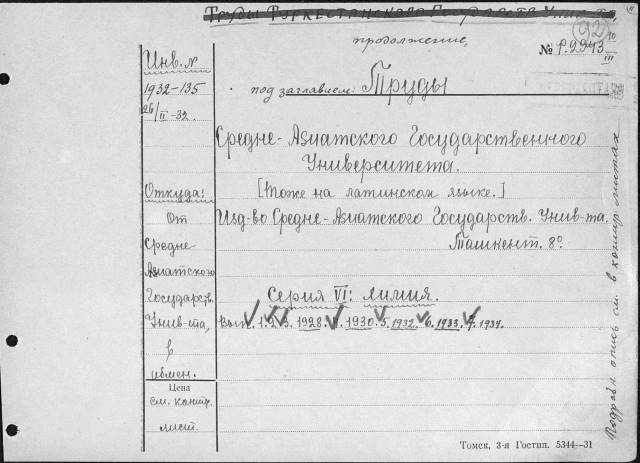 Труды Туркестанского Государств. Унив-та
продолжение,
(92)
№ Р.2943 10/III
Инв. №
1932-135
26/II-32.
под заглавием: Труды
Средне-Азиатского Государственного
Университета.
[Тоже на латинском языке.]
Откуда:
От
Средне-
Азиатского
Государств.
Унив-та,
в
обмен.
Изд-во Средне-Азиатского Государств. Унив-та.
Ташкент. 8°.
Серия VI: химия.
Вып. 1. 2. 3. 1928. 4. 1930. 5. 1932. 6. 1933. 7. 1934.
Цена
см. контр.
лист.
Подробн. опись см. в контр листах
Томск, 3-я Гостип. 5344—31